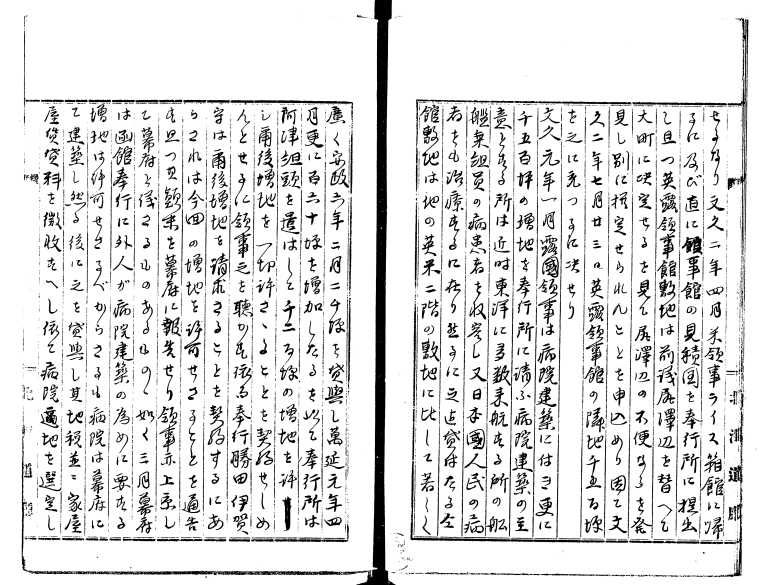 せるなり文久二年四月米領事ライス箱館に帰
るに及び直に領事館の見積図を奉行所に提出
し且つ英露領事館敷地は前議尾澤辺を替へて
大町に決定せるを見て尾澤辺の不便なるを発
見し別に撰定せられんことを申込めり因て文
久二年七月廿三日英露領事館の隣地千五百坪
を之に充つるに決せり
文久元年一月露國領事は病院建築に付き更に
千五百坪の増地を奉行所に請ふ病院建築の主
意とする所は近時東洋に多数来航する所の船
艦乗組員の病患者を収容し又日本國人民の病
者をも治療するに在り然るに之迄貸はたる全
館敷地は他の英米二階の敷地に比して著しく
廣く安政六年二月二千坪を貸與し萬延元年四
月更に百六十坪を増加したるを以て奉行所は
阿津組頭を遣はして千二百坪の増地を許
し爾後増地を一切許さゞることを契約せしめ
んとせるに領事之を聴かず依る奉行勝田伊賀
守は爾後増地を請求さることを契約するにあ
らされは今回の増地を許可せさることを通告
し且つ其顛末を幕府に報告せり領事亦上京し
て幕府と議さるものあるものゝ如く三月幕府
は函館奉行に外人が病院建築の為めに要する
増地は許可せさるべからさるも病院は幕府に
て建築し然る後に之を貸與し其地税並に家屋
屋賃貸料を徴収すへし依て病院適地を選定し
北海道廳